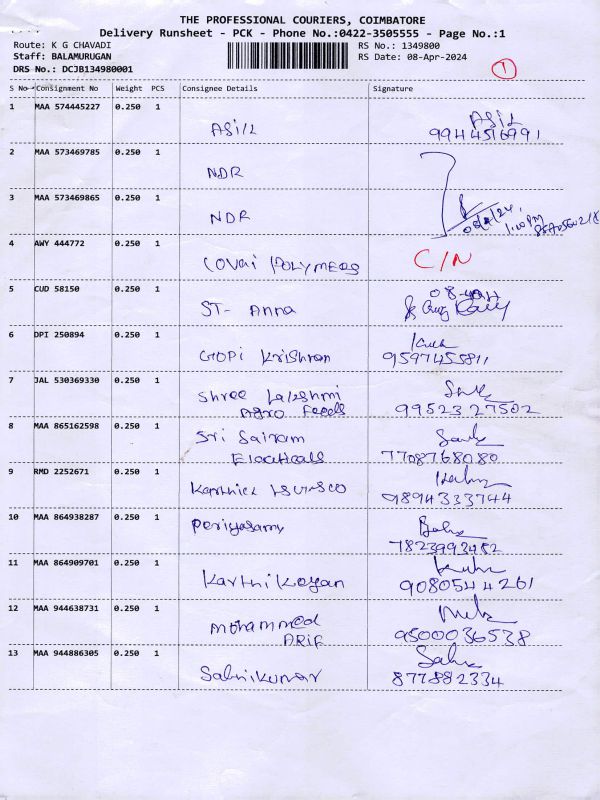 THE PROFESSIONAL COURIERS, COIMBATORE
Delivery Runsheet - PCK - Phone No.:0422-3505555 - Page No.:1
Route: K G CHAVADI
RS No.: 1349800
Staff: BALAMURUGAN
RS Date: 08-Apr-2024
DRS No.: DCJB134980001
1
S No Consignment No Weight PCS Consignee Details Signature
1 MAA 574445227 0.250 1
ASIL
9944516991
2 MAA 573469785 0.250 1
NDR
3 MAA 573469865 0.250 1
NDR
4 AWY 444772 0.250 1
COVAI POLYMERS C/N
5 CUD 58150 0.250 1
ST- Anna
6 DPI 250894 0.250 1
GOPI Krishnan 9597455811
7 JAL 530369330 0.250 1
Shree Lakshmi
Agro Feeds 9952327502
8 MAA 865162598 0.250 1
Sri Sairam
Electicals 7708768080
9 RMD 2252671 0.250 1
Karthick 9894333744
10 MAA 864938287 0.250 1
Periyasamy
7823993452
11 MAA 864909701 0.250 1
Karthikeyan 9080544261
12 MAA 944638731 0.250 1
Mohammed
ARIF 9500036538
13 MAA 944886305 0.250 1
877882334